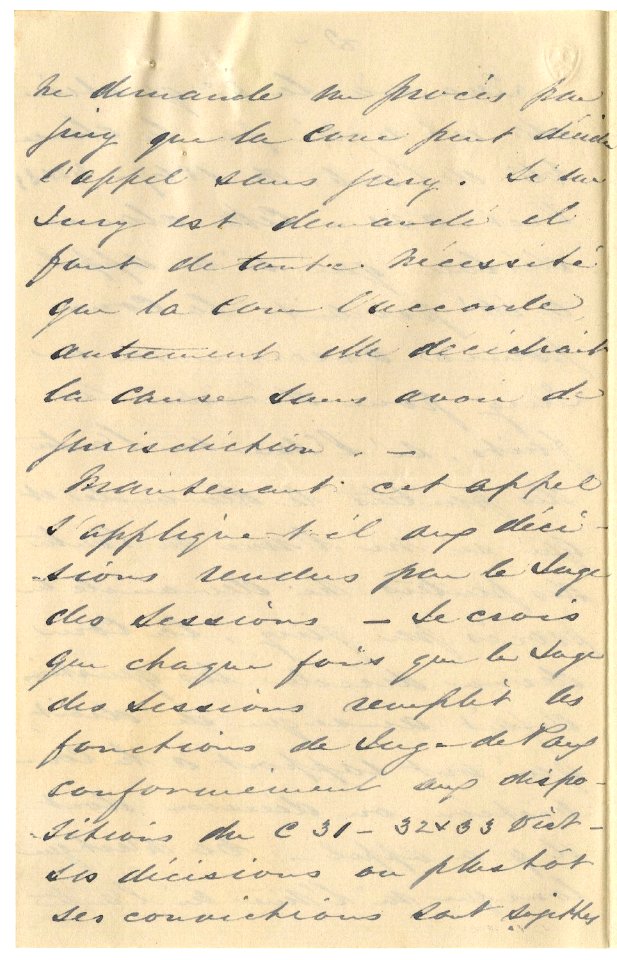 ne demande un procès par
jury que la Cour peut décider
l'appel sans jury. Si un
jury est demandé il
faut de toute nécessité
que la Cour l'accorde,
autrement elle déciderait
la cause sans avoir de
jurisdiction. —
Maintenant cet appel
s'applique t-il aux déci-
-sions rendus par le Juge
des Sessions — Je crois
que chaque fois que le Juge
des Sessions remplit les
fonctions de Juge de Paix
conformement aux dispo-
-sitions du C 31 - 32 & 33 Vict -
ses décisions ou plustôt
ses convictions sont sujettes